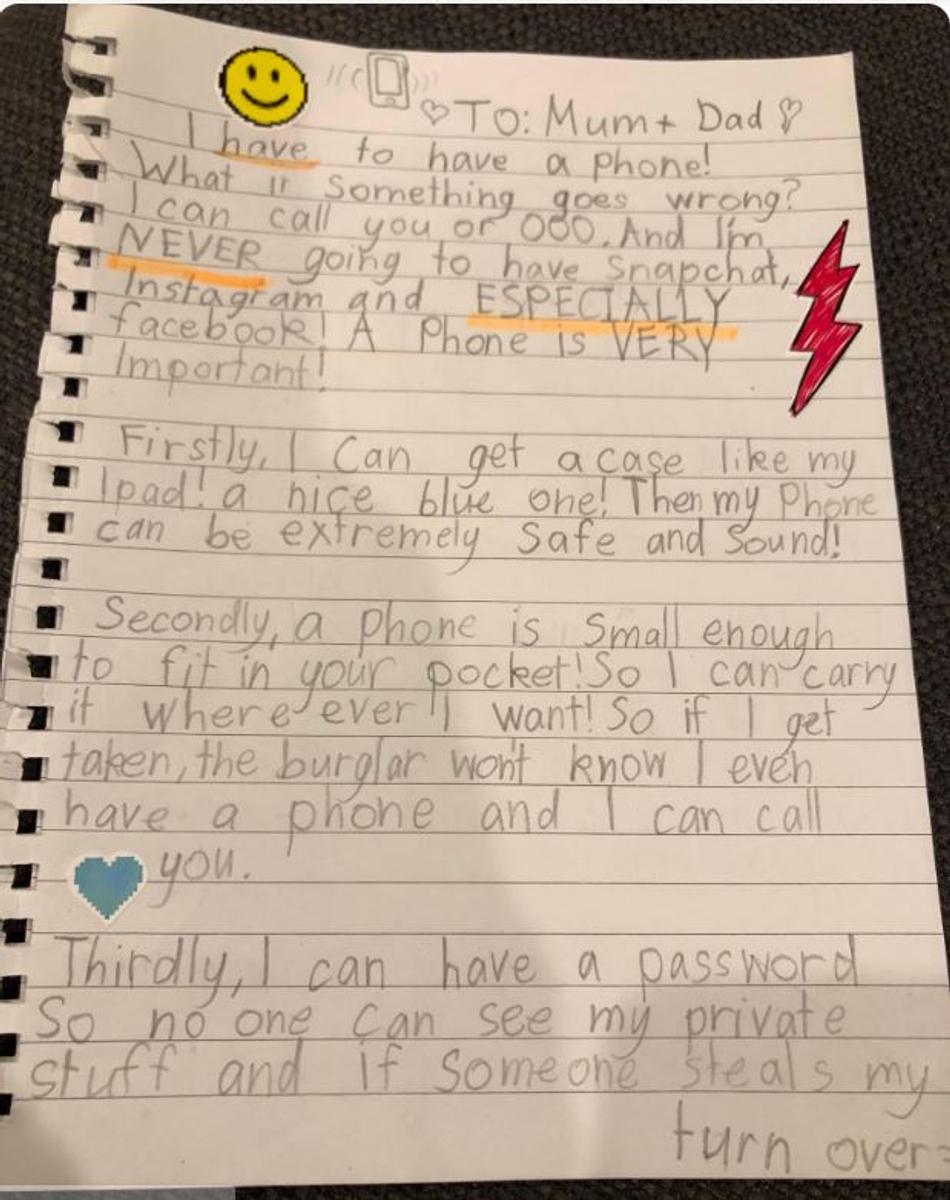 ♡TO: Mum+ Dad♡
I have to have a phone!
What if something goes wrong?
I can call you or 000. And I'm
NEVER going to have snapchat,
Instagram and ESPECIALLY
facebook! A Phone is VERY
Important!
Firstly, I Can get a case like my
Ipad! a nice blue one! Then my Phone
can be extremely Safe and Sound!
Secondly, a phone is Small enough
to fit in your pocket! So I can carry
it where ever I want! So if I get
taken, the burglar won't know I even
have a phone and I can call
you.
Thirdly, I can have a password
So no one can see my private
stuff and if someone steals my
turn over